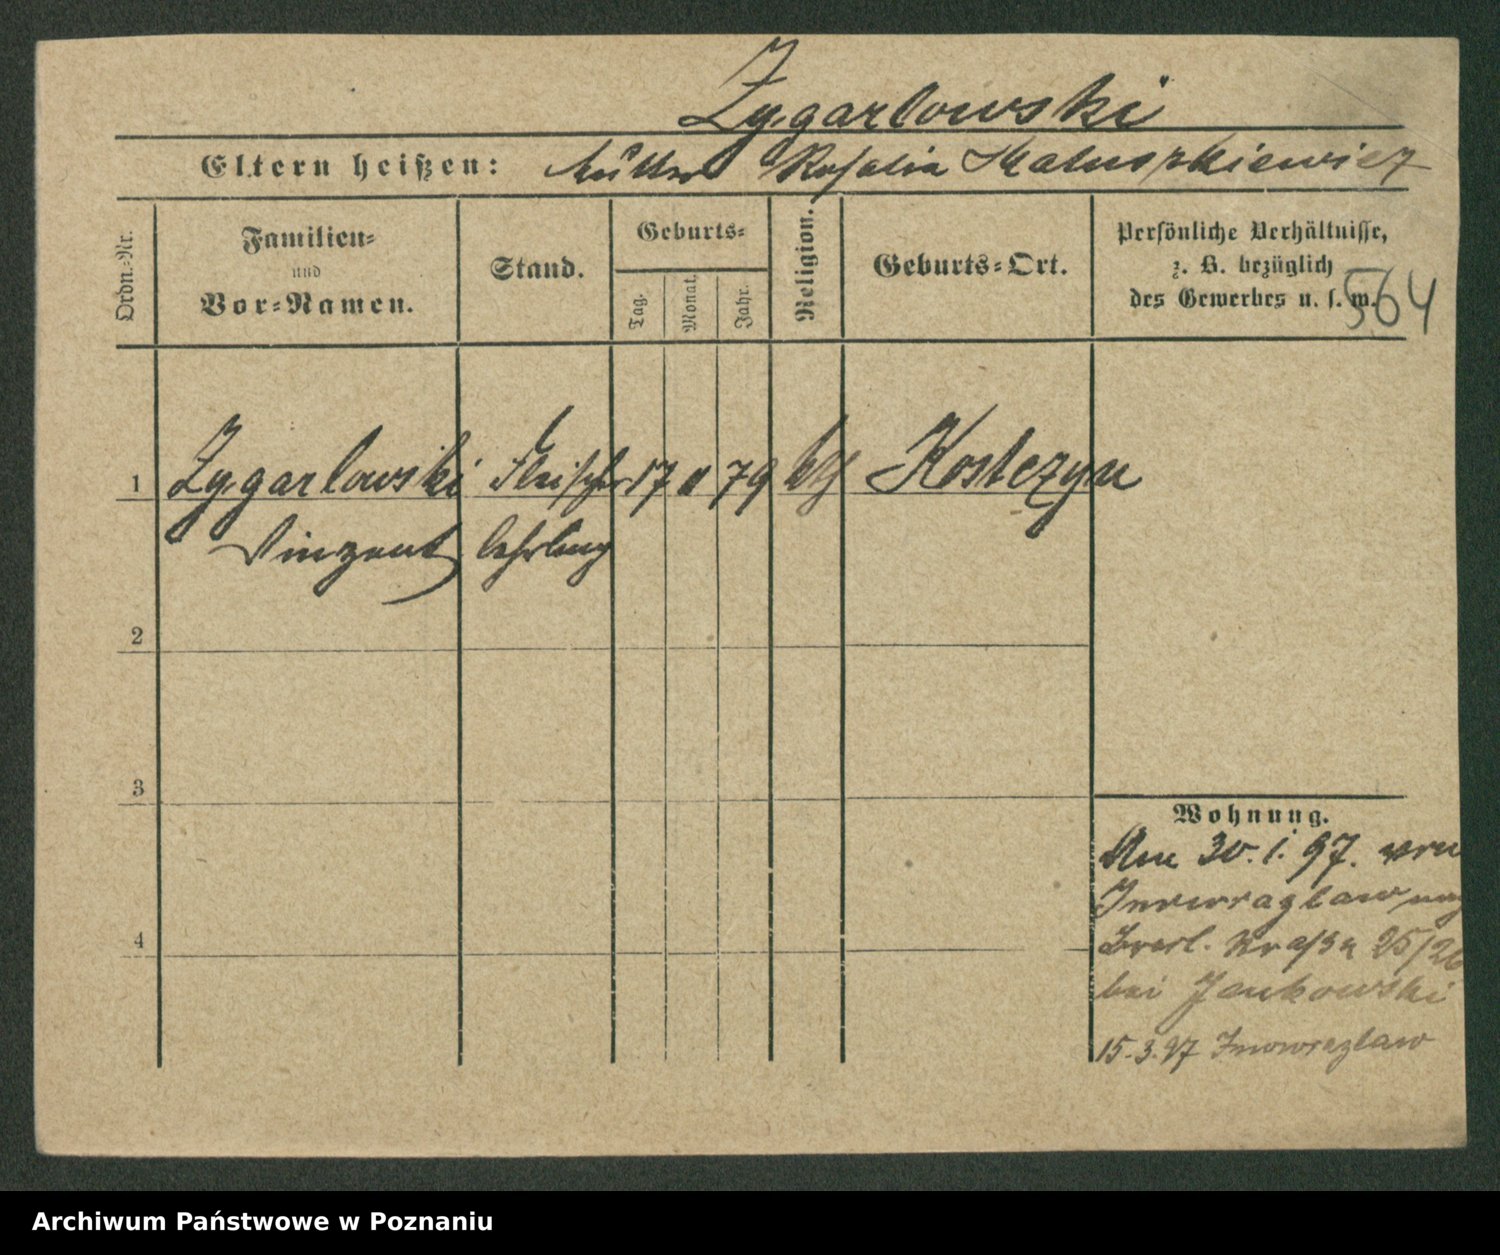 Zygarlowski
Eltern heißen: Mutter Rosalia Matuszkiewicz
Ordn.-Nr.
Familien-
und
Vor-Namen.
Stand.
Geburts-
Tag.
Monat.
Jahr.
Religion.
Geburts-Ort.
Persönliche Verhältnisse,
z. B. bezüglich
des Gewerbes u. s. w.
564
1 Zygarlowski Fleischer 17 79 kth Kostczyn
Vinzent lehrling
2
3
4
Wohnung.
Am 30. 1. 97. von
Inowrazlaw nach
Bresl. Straße 25/26
bei Jankowski
15.3.97 Inowrazlaw
Archiwum Państwowe w Poznaniu